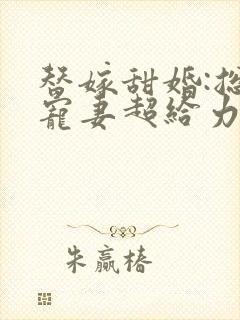 替嫁甜婚:总
宠妻超给力
朱赢椿